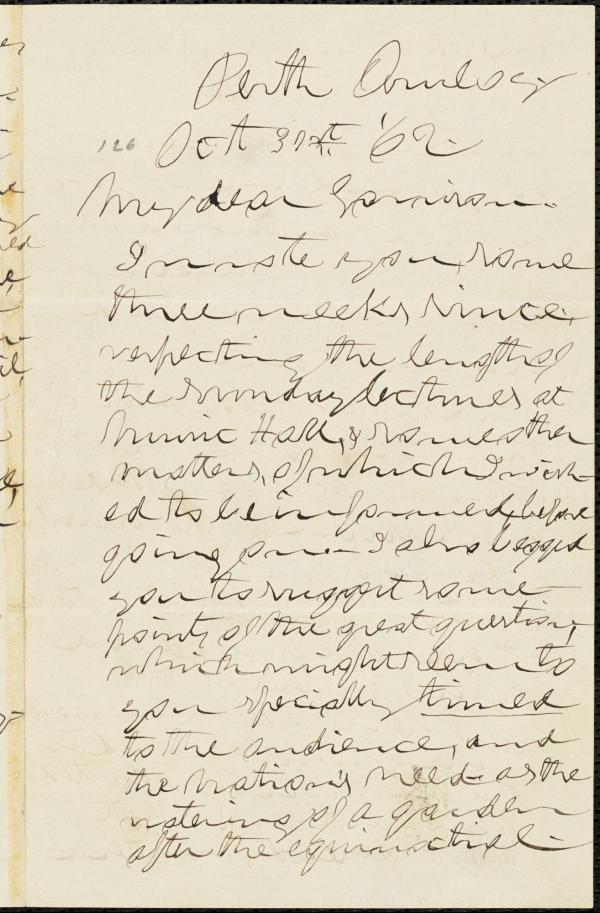 Perth Amboy
126 Oct 31st '62.
My dear Garrison.
I wrote you some
three weeks since,
respecting the length of
the Sunday lectures at
Music Hall, & some other
matters, of which I wish-
ed to be informed, before
going on — I also begged
you to suggest some
points of the great question,
which might seem to
you specially timed
to the audience, and
the Nation's need — as the
watering of a garden
after the equinoctial —